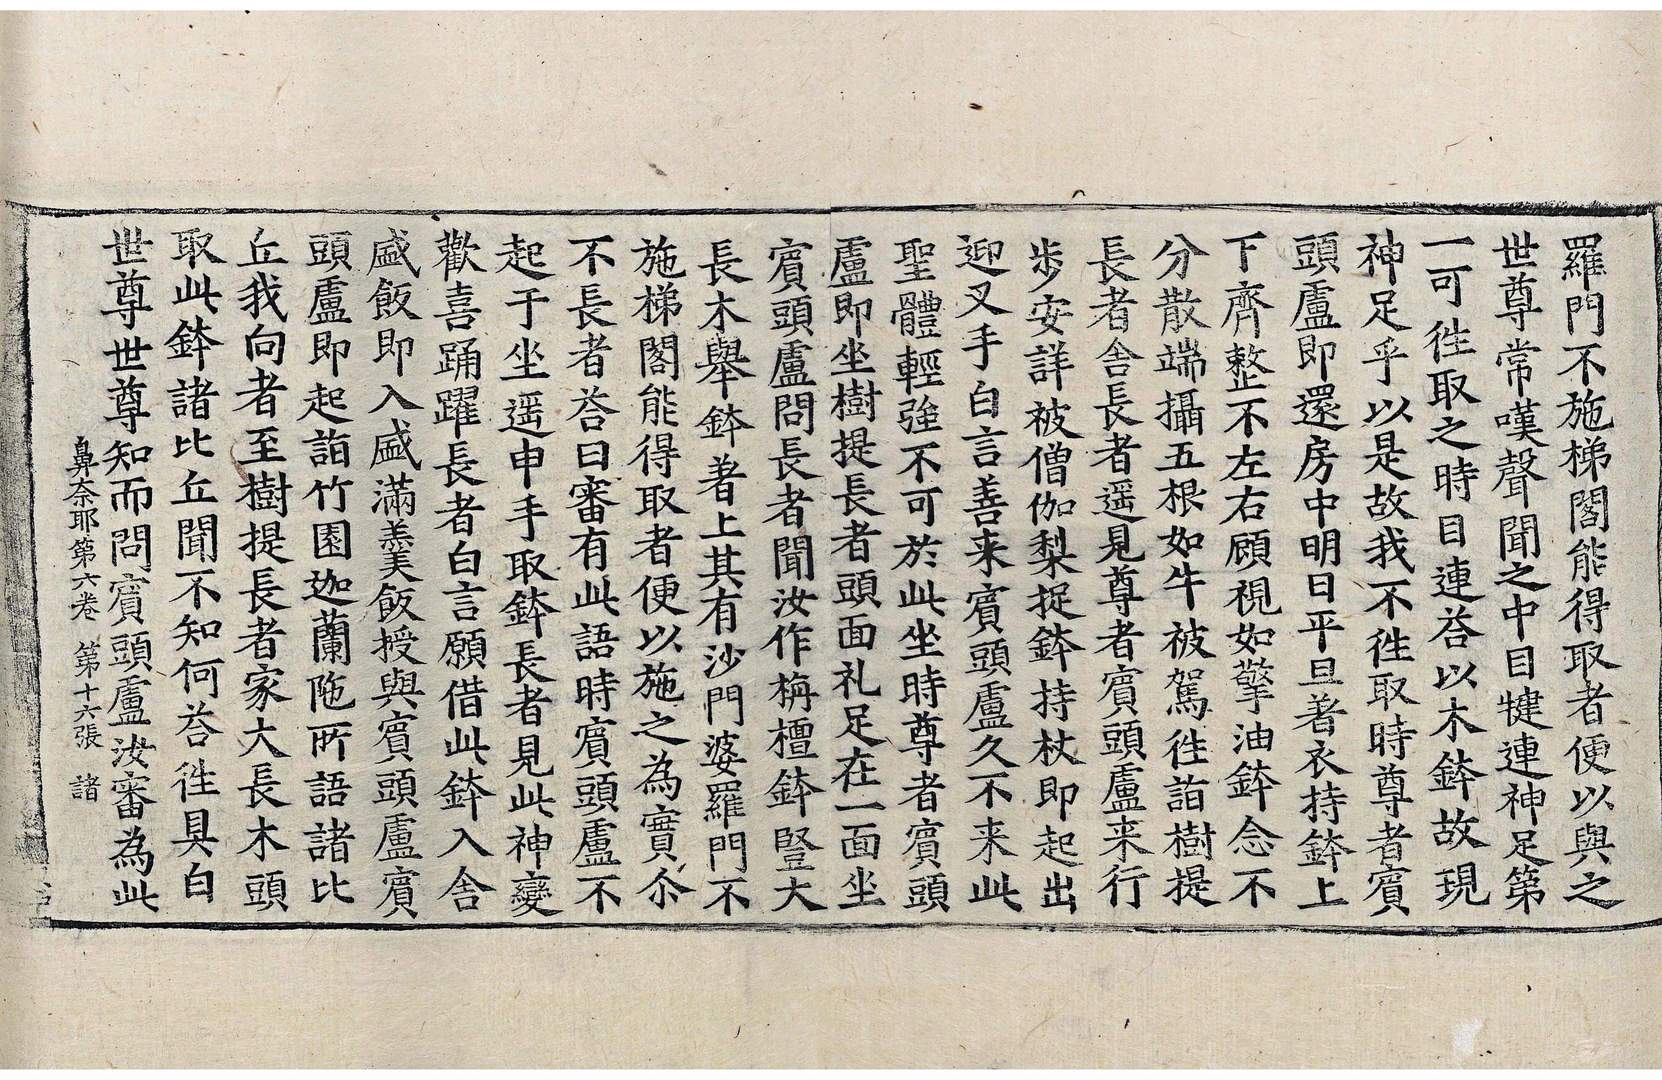 羅門不施梯閣能得取者便以與之
世尊常嘆聲聞之中目犍連神足第
一可徃取之時目連荅以木鉢故現
神足乎以是故我不徃取時尊者賔
頭盧即還房中明日平旦著衣持鉢上
下齊整不左右顧視如擎油鉢念不
分散端攝五根如牛被駕徃詣樹提
長者舍長者遥見尊者賔頭盧来行
步安詳被僧伽梨捉鉢持杖即起出
迎叉手白言善来賔頭盧久不来此
聖體輕強不可於此坐時尊者賔頭
盧即坐樹提長者頭面礼足在一面坐
賔頭盧問長者聞汝作栴檀鉢豎大
長木舉鉢著上其有沙門婆羅門不
施梯閣能得取者便以施之為實尒
不長者荅曰審有此語時賔頭盧不
起于坐遥申手取鉢長者見此神變
歡喜踊躍長者白言願借此鉢入舍
盛飯即入盛滿羙飯授與賔頭盧賔
頭盧即起詣竹園迦蘭陁所語諸比
丘我向者至樹提長者家大長木頭
取此鉢諸比丘聞不知何荅徃具白
世尊世尊知而問賔頭盧汝審為此
鼻奈耶第六卷 第十六張 諸